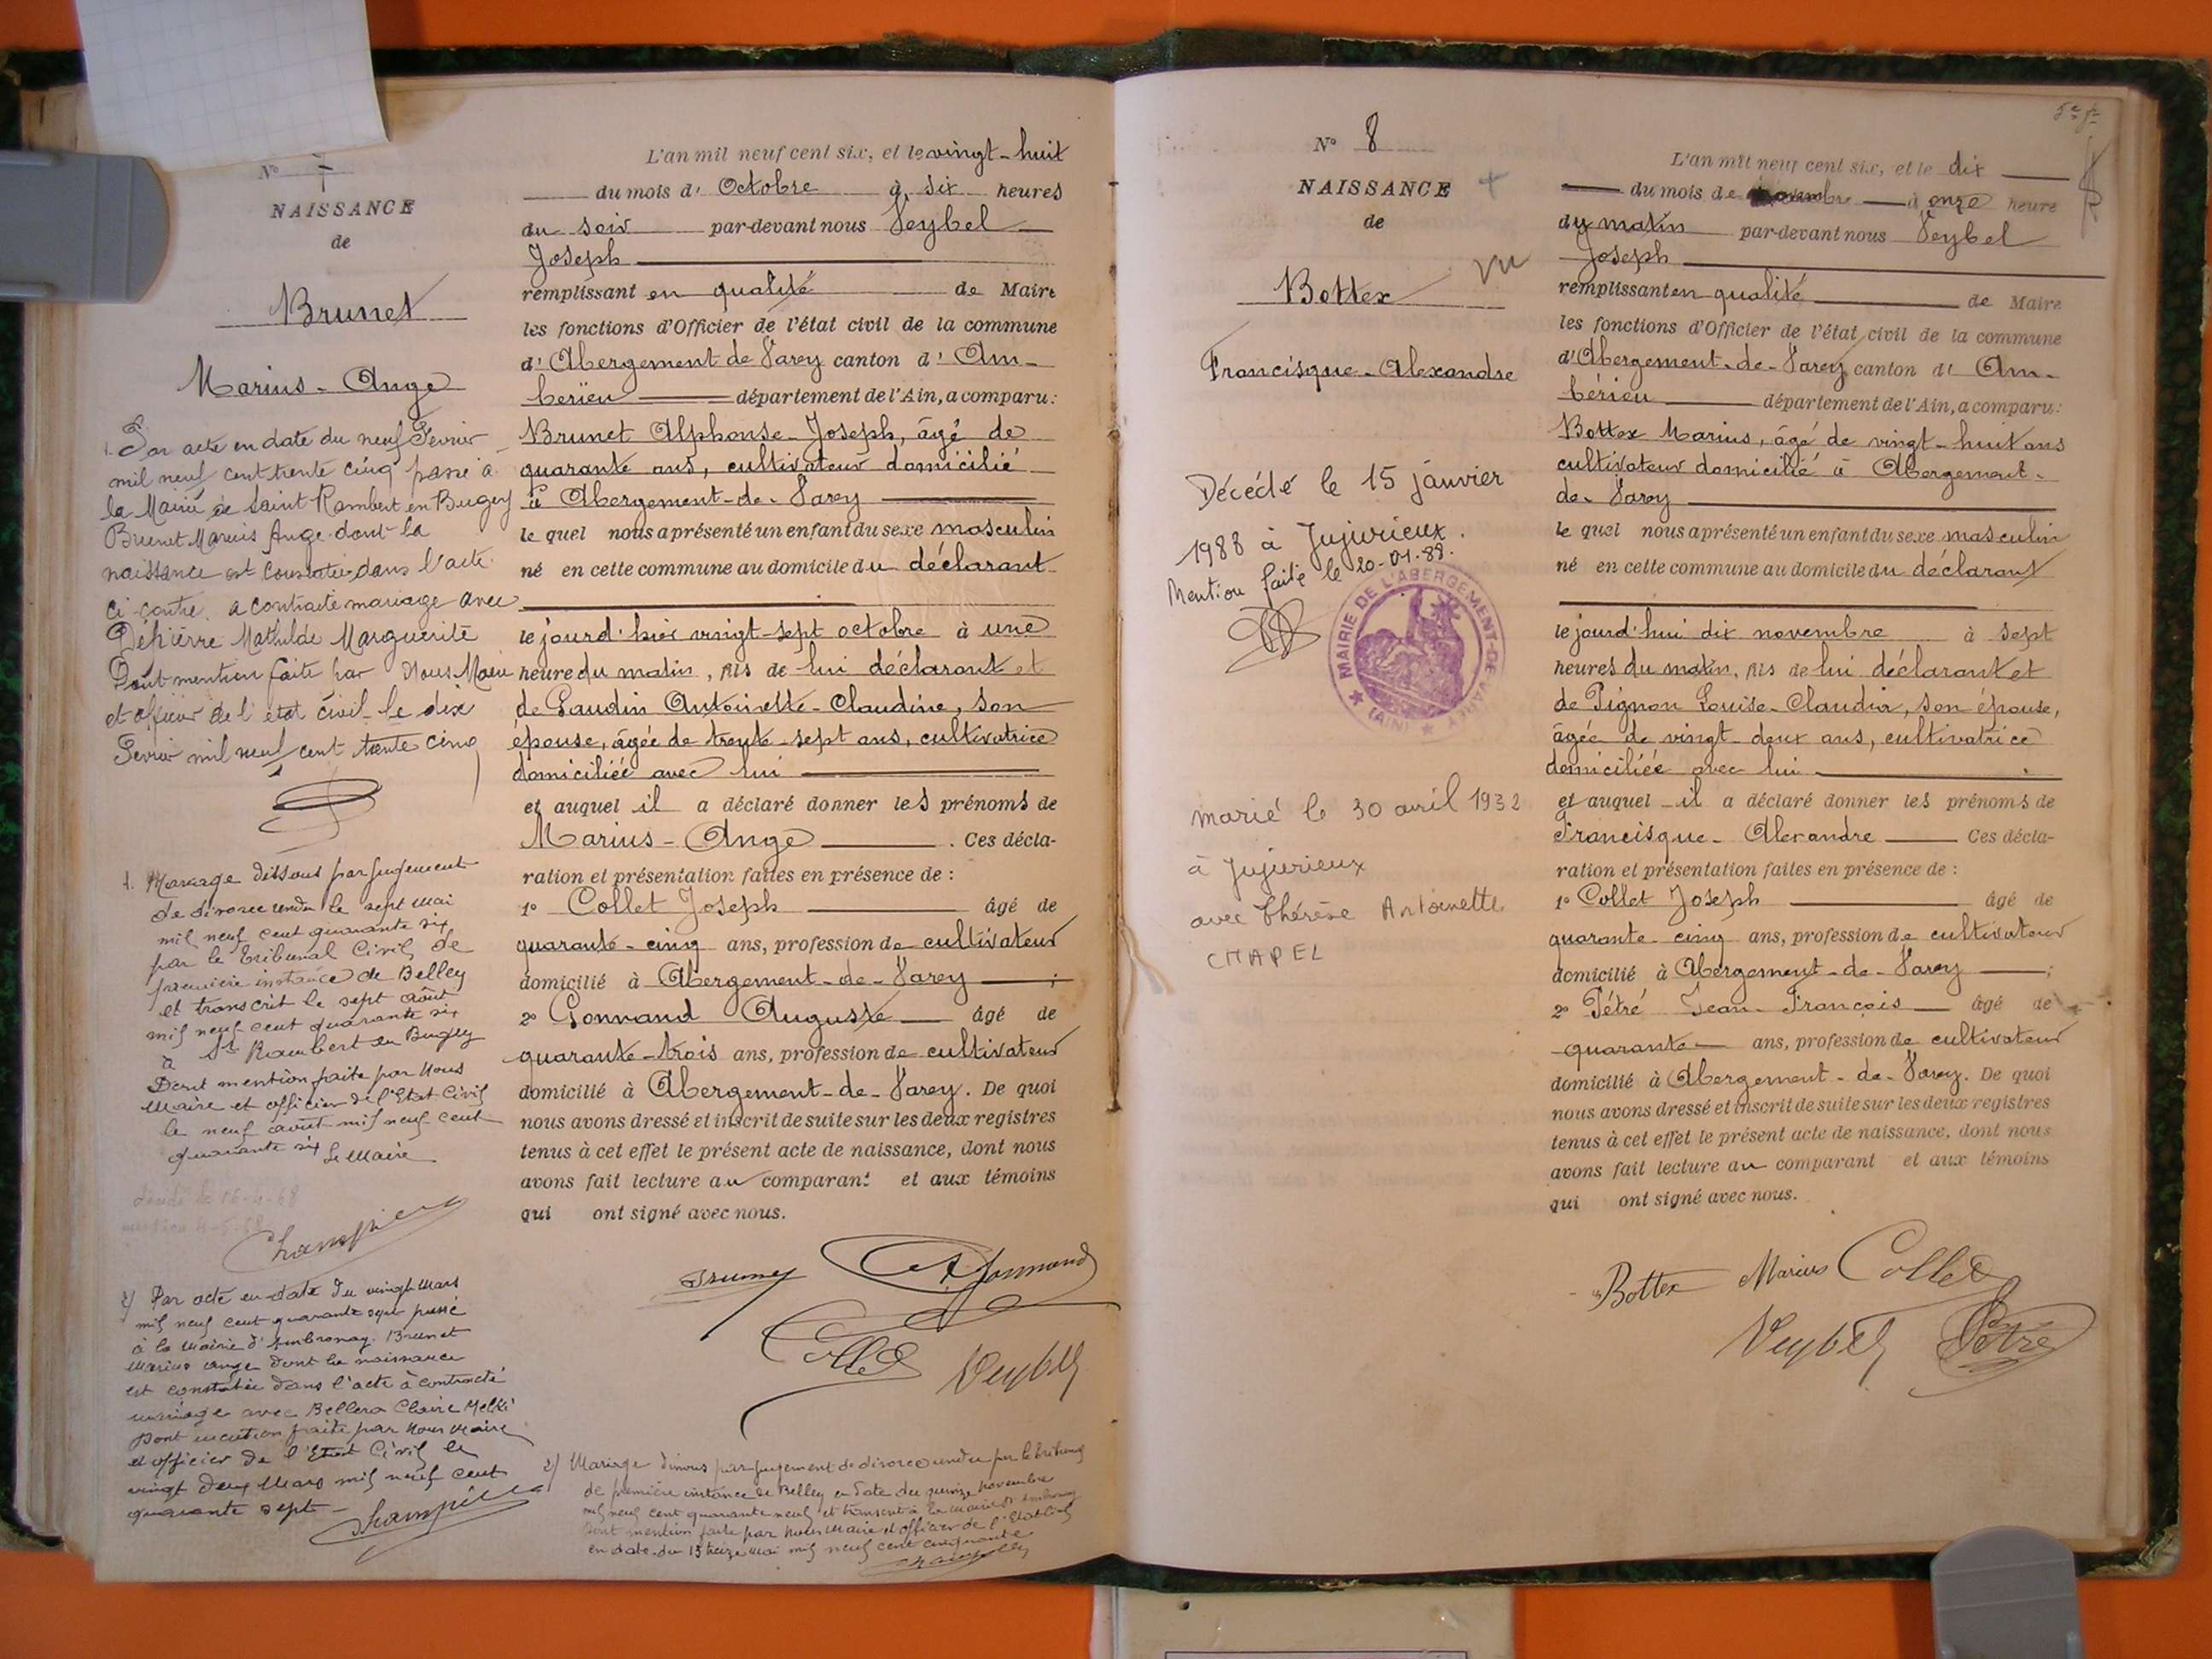 Nº 7
NAISSANCE
de
Brunet
Marius-Ange
1. Par acte en date du neuf Février
mil neuf cent trente cinq passé à
la Mairie de Saint Rambert en Bugey
Brunet Marius Ange dont la
naissance est constatée dans l'acte
ci-contre a contracté mariage avec
Déhierre Mathilde Marguerite
Dont mention faite par Nous Maire
et officier de l'état civil le dix
Février mil neuf cent trente cinq
1. Mariage dissous par jugement
de divorce rendu le sept mai
mil neuf cent quarante six
par le Tribunal Civil de
première instance de Belley
et transcrit le sept août
mil neuf cent quarante six
à St Rambert en Bugey
Dont mention faite par Nous
Maire et officier de l'Etat Civil
le neuf août mil neuf cent
quarante six Le Maire
décédé le 16-4-68
mention 4-5-68
2) Par acte en date du vingt Mars
mil neuf cent quarante sept passé
à la Mairie d'Ambronay Brunet
Marius ange dont la naissance
est constatée dans l'acte à contracté
mariage avec Bellera Claire
Dont mention faite par Nous Maire
et officier de l'Etat Civil le
vingt deux Mars mil neuf cent
quarante sept
L'an mil neuf cent six, et le vingt-huit
du mois d'Octobre à six heures
du soir par-devant nous Veybel
Joseph
remplissant en qualité de Maire
les fonctions d'Officier de l'état civil de la commune
d'Abergement de Varey canton d'Am-
bérieu département de l'Ain, a comparu:
Brunet Alphonse-Joseph, âgé de
quarante ans, cultivateur domicilié
à Abergement-de-Varey
le quel nous a présenté un enfant du sexe masculin
né en cette commune au domicile du déclarant
le jourd'hier vingt-sept octobre à une
heure du matin, fils de lui déclarant et
de Gaudin Antoinette-Claudine, son
épouse, âgée de trente-sept ans, cultivatrice
domiciliée avec lui
et auquel il a déclaré donner les prénoms de
Marius-Ange. Ces décla-
ration et présentation faites en présence de :
1º Collet Joseph âgé de
quarante-cinq ans, profession de cultivateur
domicilié à Abergement-de-Varey ;
2º Gonnand Auguste âgé de
quarante-trois ans, profession de cultivateur
domicilié à Abergement-de-Varey. De quoi
nous avons dressé et inscrit de suite sur les deux registres
tenus à cet effet le présent acte de naissance, dont nous
avons fait lecture au comparant et aux témoins
qui ont signé avec nous.
Brunet A Gonnand
Collet Veybel
2) Mariage dissous par jugement de divorce rendu par le tribunal
de première instance de Belley en date du quinze novembre
mil neuf cent quarante neuf et transcrit à la Mairie d'Ambronay
Dont mention faite par Nous Maire et officier de l'Etat Civil
en date du 13 treize Mai mil neuf cent cinquante
Nº 8
NAISSANCE
de
Bottex
vu
Francisque-Alexandre
Décédé le 15 janvier
1988 à Jujurieux.
Mention faite le 20-01-88.
MAIRIE DE L'ABERGEMENT-DE-VAREY
(AIN)
marié le 30 avril 1932
à Jujurieux
avec Thérèse Antoinette
CHAPEL
L'an mil neuf cent six, et le dix
du mois de novembre à onze heure
du matin par-devant nous Veybel
Joseph
remplissant en qualité de Maire
les fonctions d'Officier de l'état civil de la commune
d'Abergement-de-Varey canton d'Am-
bérieu département de l'Ain, a comparu:
Bottex Marius, âgé de vingt-huit ans
cultivateur domicilié à Abergement-
de-Varey
le quel nous a présenté un enfant du sexe masculin
né en cette commune au domicile du déclarant
le jourd'hui dix novembre à sept
heures du matin, fils de lui déclarant et
de Pignon Louise-Claudia, son épouse,
âgée de vingt-deux ans, cultivatrice
domiciliée avec lui
et auquel il a déclaré donner les prénoms de
Francisque-Alexandre Ces décla-
ration et présentation faites en présence de :
1º Collet Joseph âgé de
quarante-cinq ans, profession de cultivateur
domicilié à Abergement-de-Varey ;
2º Pétré Jean-François âgé de
quarante ans, profession de cultivateur
domicilié à Abergement-de-Varey. De quoi
nous avons dressé et inscrit de suite sur les deux registres
tenus à cet effet le présent acte de naissance, dont nous
avons fait lecture au comparant et aux témoins
qui ont signé avec nous.
Bottex Marius Collet
Veybel Pétré